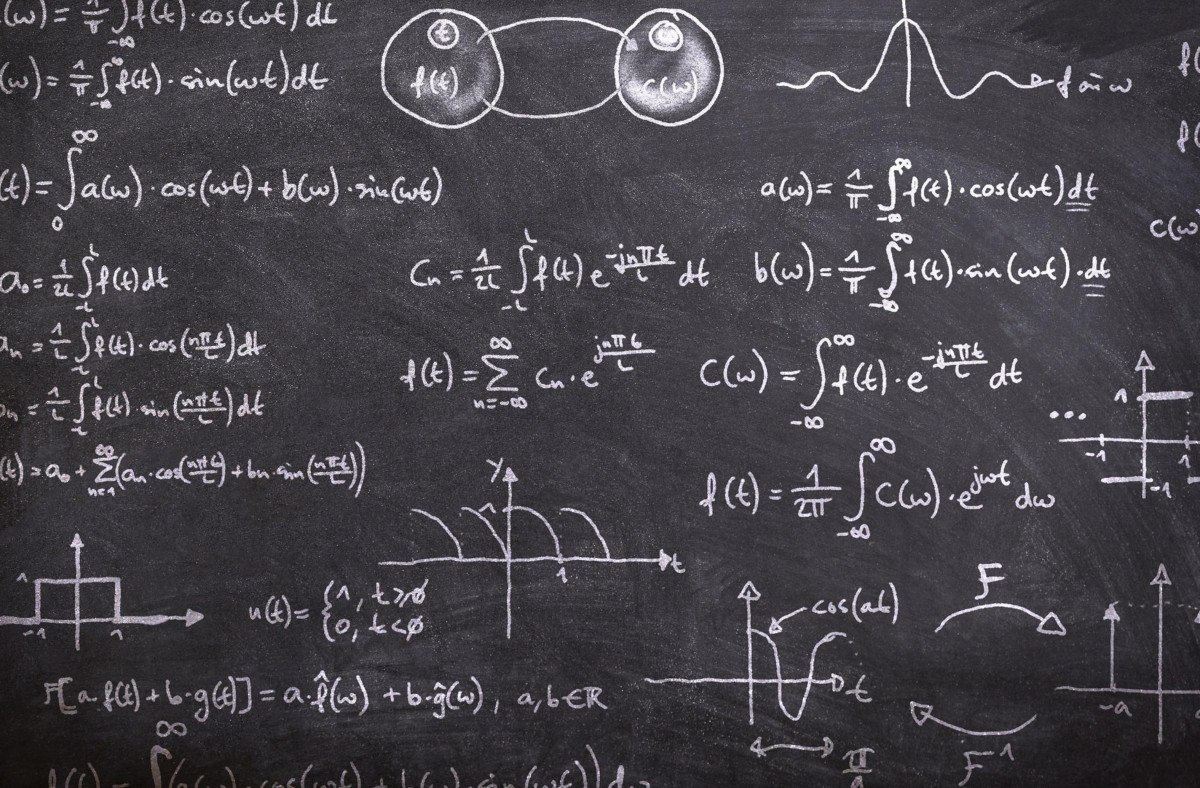 (ω) = 1/π ∫_{-∞} f(t)·cos(ωt) dt
(ω) = 1/π ∫_{-∞}^{∞} f(t)·sin(ωt) dt
t
f(t)
c(ω)
f̂ in ω
(t) = ∫_0^∞ a(ω)·cos(ωt) + b(ω)·sin(ωt)
a(ω) = 1/π ∫_{-∞}^{∞} f(t)·cos(ωt) dt
c(ω
a₀ = 1/2L ∫_{-L}^{L} f(t) dt
Cₙ = 1/2L ∫_{-L}^{L} f(t) e^{-jnπt/L} dt
b(ω) = 1/π ∫_{-∞}^{∞} f(t)·sin(ωt)·dt
aₙ = 1/L ∫_{-L}^{L} f(t)·cos(nπt/L) dt
f(t) = ∑_{n=-∞}^{∞} cₙ·e^{jnπt/L}
C(ω) = ∫_{-∞}^{∞} f(t)·e^{-jnπt/L} dt
bₙ = 1/L ∫_{-L}^{L} f(t)·sin(nπt/L) dt
...
1
-1
1
-1
(t) = a₀ + ∑_{n=1}^{∞} (aₙ·cos(nπt/L) + bₙ·sin(nπt/L))
f(t) = 1/2π ∫_{-∞}^{∞} C(ω)·e^{jωt} dω
y
1
1
t
1
-1
1
u(t) = {1, t≥0
{0, t<0
cos(at)
t
π/a
F
F⁻¹
-a
F[a·f(t) + b·g(t)] = a·f̂(ω) + b·ĝ(ω), a,b∈ℝ
f(t) = ∫^∞ (a(ω)·cos(ωt) + b(ω)·sin(ωt)) dω